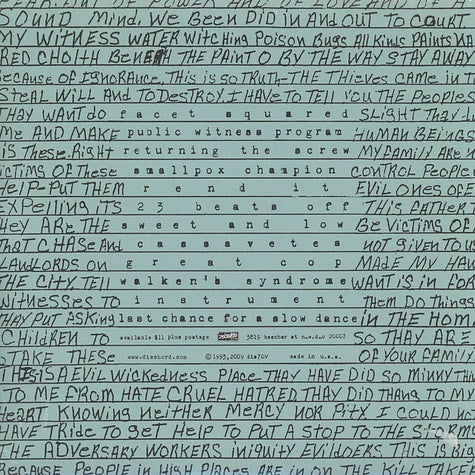 SOUND MIND, WE BEEN DID IN AND OUT TO COURT
MY WITNESS WATER WITCHING POISON BUGS ALL KINDS PAINTS
RED THE PAINT O BY THE WAY STAY AWAY
BECAUSE OF IGNORANCE, THIS IS SO TRUTH-THE THIEVES CAME IN T
STEAL WILL AND TO DESTROY. I HAVE TO TELL YOU THE PEOPLES
THAY WANT do facet squared SLIGHT THAY
ME AND MAKE public witness program HUMAN BEINGS
IS THESE. RIGHT returning the screw MY FAMILY ARE
VICTIMS OF THESE smallpox champion CONTROL PEOPLE
HELP-PUT THEM rend it EVIL ONES OF
EXPELLING ITS 23 beats off THIS FATHER
HEY ARE THE sweet and low BE VICTIMS OF
THAT CHASE AND cassavetes NOT GIVEN TO US
LANDLORDS ON great cop MADE MY HAN
THE CITY TELL walken's syndrome WANT IS IN FOR
WITNESSES TO instrument THEM DO THINGS
THAY PUT ASKING last chance for a slow dance IN THE HOM
CHILDREN TO available $11 plus postage dischord 3819 beecher st n.w. d.c 20007 SO THAY ARE
TAKE THESE www.dischord.com ©1993,2009 dis70V made in u.s.a. OF YOUR FAMILY
THIS IS A EVIL WICKEDNESS PLACE THAY HAVE DID SO MINNY THIN
TO ME FROM HATE CRUEL HATRED THAY DID THANG TO MY
HEART KNOWING NEITHER MERCY NOR PITY I COULD NO
HAVE TRIDE TO GET HELP TO PUT A STOP TO THE STORMS
THE ADVERSARY WORKERS INIQUITY EVILDOERS THIS IS BE
BECAUSE PEOPLE IN HIGH PLACES ARE IN ON THE KILL